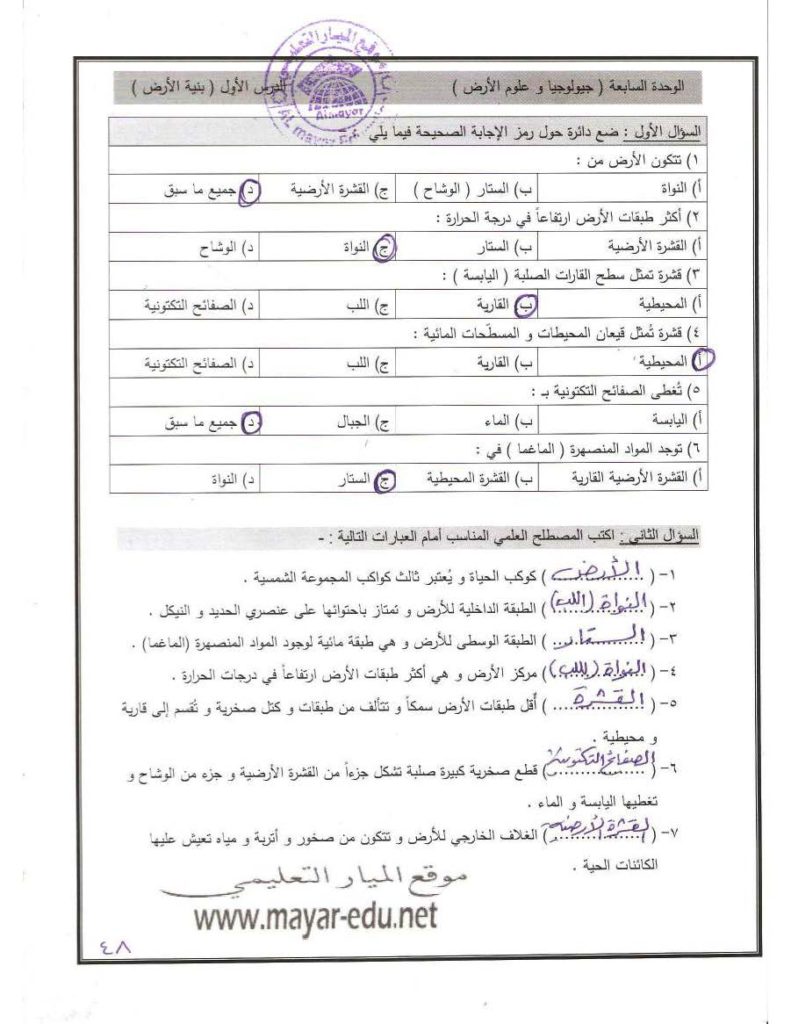 موقع الميار التعليمي
Almayar
الوحدة السابعة ( جيولوجيا و علوم الأرض ) الدرس الأول ( بنية الأرض )
السؤال الأول : ضع دائرة حول رمز الإجابة الصحيحة فيما يلي
١) تتكون الأرض من :
أ) النواة ب) الستار ( الوشاح ) ج) القشرة الأرضية د) جميع ما سبق
٢) أكثر طبقات الأرض ارتفاعاً في درجة الحرارة :
أ) القشرة الأرضية ب) الستار ج) النواة د) الوشاح
٣) قشرة تمثل سطح القارات الصلبة ( اليابسة ) :
أ) المحيطية ب) القارية ج) اللب د) الصفائح التكتونية
٤) قشرة تُمثل قيعان المحيطات و المسطّحات المائية :
أ) المحيطية ب) القارية ج) اللب د) الصفائح التكتونية
٥) تُغطى الصفائح التكتونية بـ :
أ) اليابسة ب) الماء ج) الجبال د) جميع ما سبق
٦) توجد المواد المنصهرة ( الماغما ) في :
أ) القشرة الأرضية القارية ب) القشرة المحيطية ج) الستار د) النواة
السؤال الثاني : اكتب المصطلح العلمي المناسب أمام العبارات التالية : -
١- ( الأرض ) كوكب الحياة و يُعتبر ثالث كواكب المجموعة الشمسية .
٢- ( النواة (اللب) ) الطبقة الداخلية للأرض و تمتاز باحتوائها على عنصري الحديد و النيكل .
٣- ( الستار ) الطبقة الوسطى للأرض و هي طبقة مائية لوجود المواد المنصهرة (الماغما) .
٤- ( النواة (اللب) ) مركز الأرض و هي أكثر طبقات الأرض ارتفاعاً في درجات الحرارة .
٥- ( القشرة ) أقل طبقات الأرض سمكاً و تتألف من طبقات و كتل صخرية و تُقسم إلى قارية
و محيطية .
٦- ( الصفائح التكتونية ) قطع صخرية كبيرة صلبة تشكل جزءاً من القشرة الأرضية و جزء من الوشاح و
تغطيها اليابسة و الماء .
٧- ( القشرة الأرضية ) الغلاف الخارجي للأرض و تتكون من صخور و أتربة و مياه تعيش عليها
الكائنات الحية .
موقع الميار التعليمي
www.mayar-edu.net
٤٨